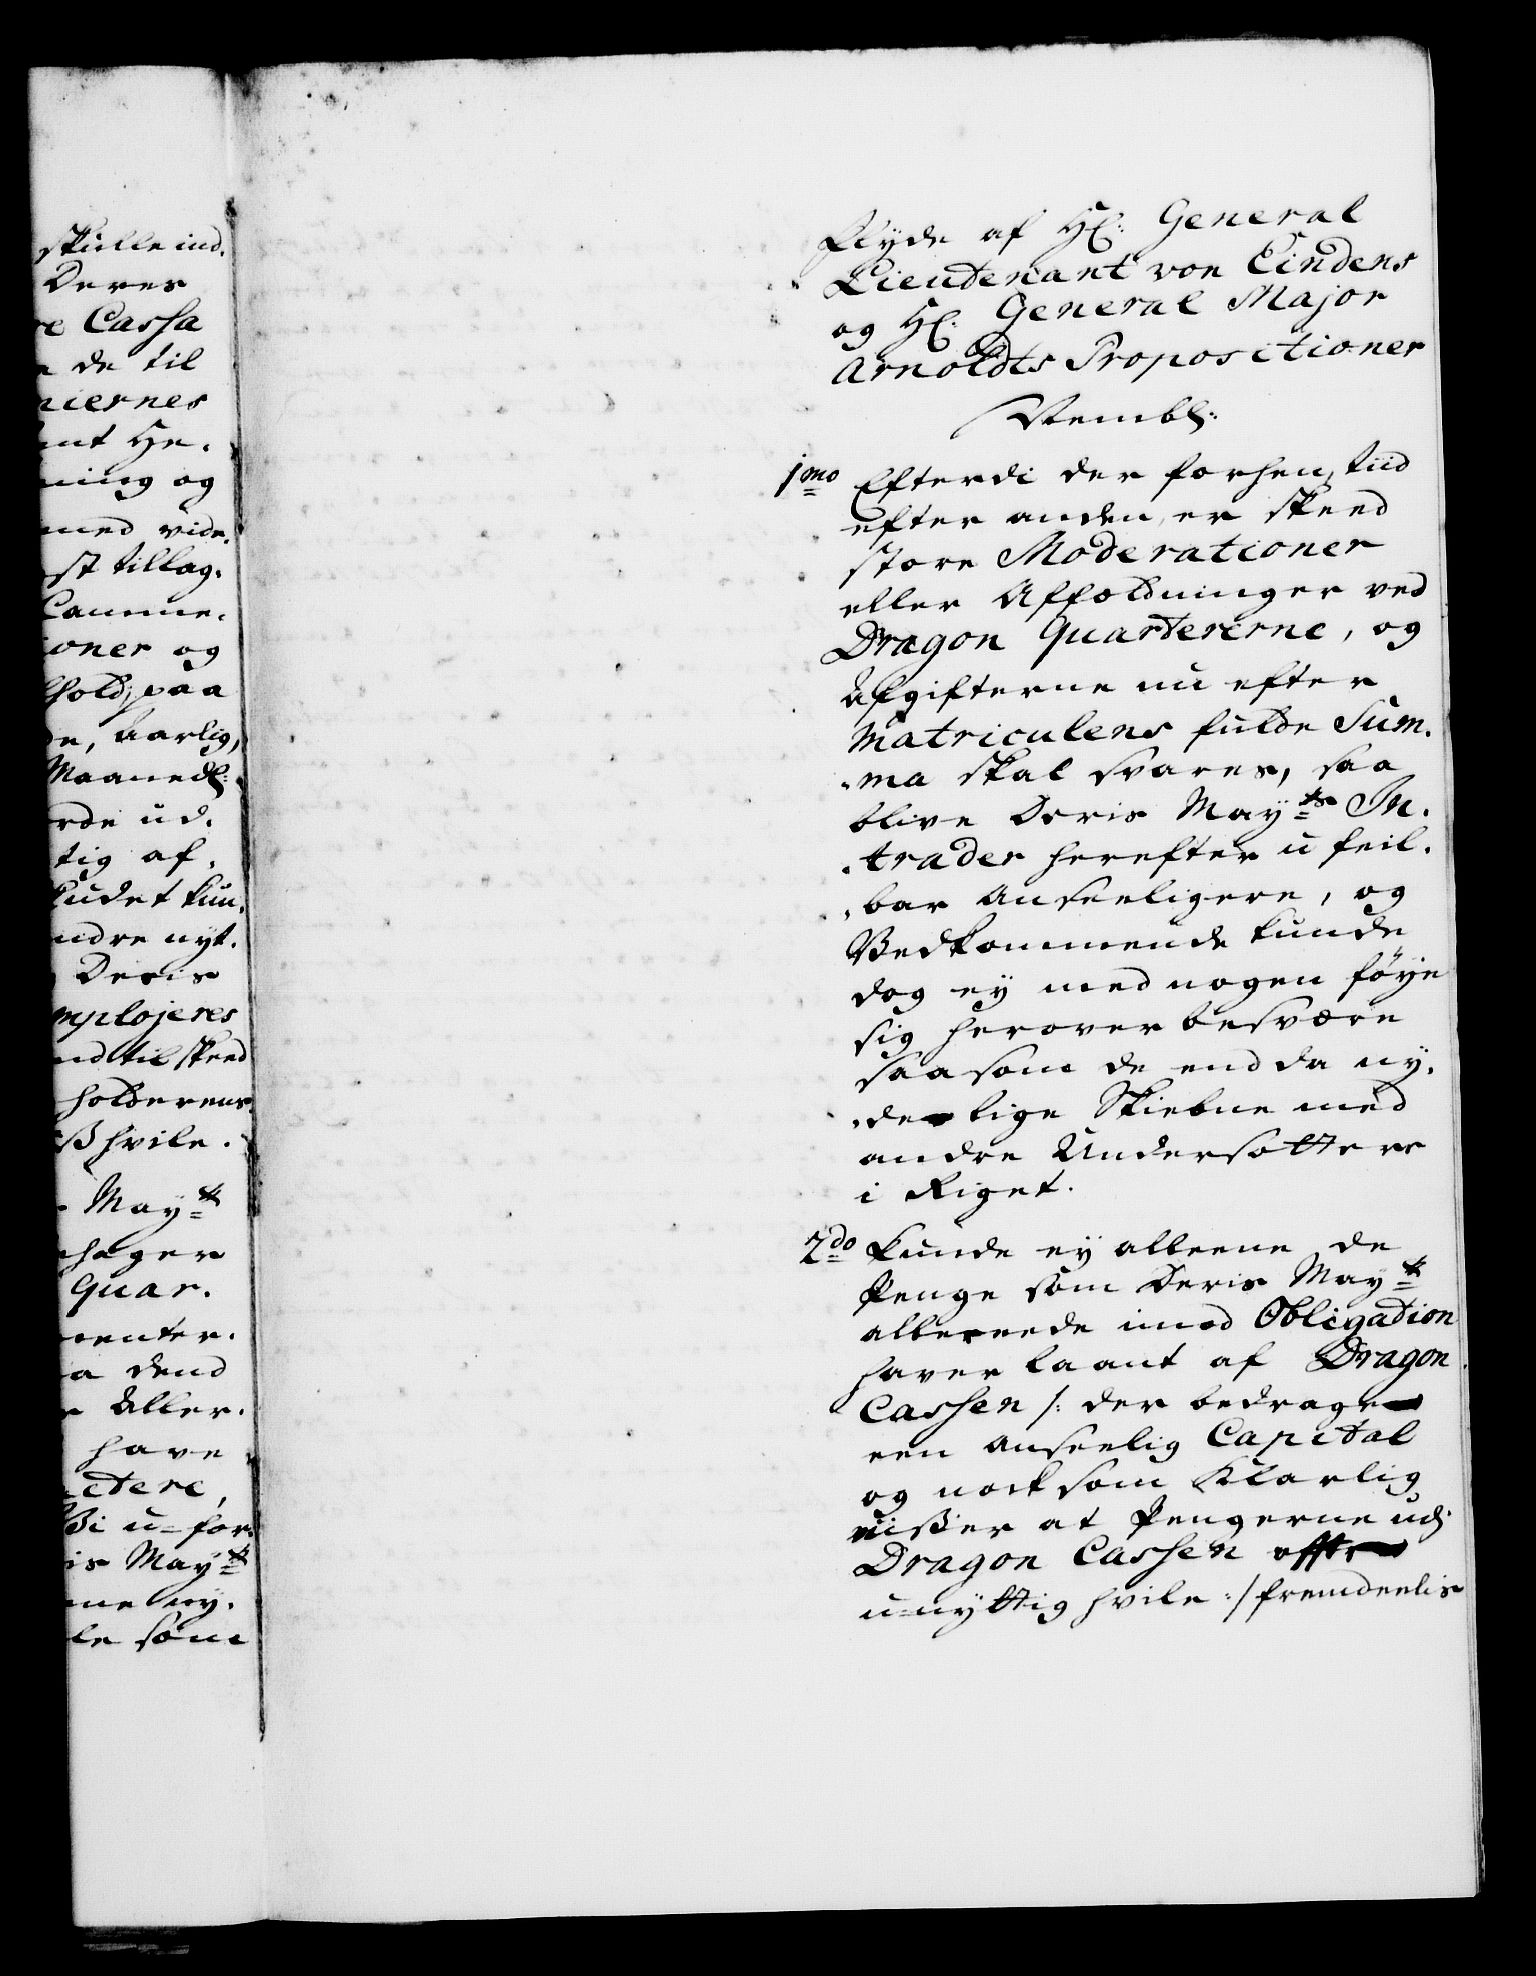 skulle ind.
Deres
re Cassa
de til
niernes
ant He.
ning og
med vide.
st tillag.
Camme.
ioner og
hold, paa
de, aarlig,
Maanedl:
rde ud.
tig af.
Kudet kun.
ndre nyt.
Deris
mplojeres
nd til skeed
holderens
ß hvile.
May.tt
hager
Quar.
menter.
a dend
Aller.
have
ctere,
Bi u=for.
is May.tt
me ny.
le som
flyde af Hl: General
Lieutenant von Eindens
og Hl: General Major
Arnoldts Propositioner
Nembl:
1mo Efterdi der forhen, tiid
efter anden, er skeed
store Moderationer
eller Affældninger ved
Dragon Quartererne, og
Afgifterne nu efter
Matriculens fulde Sum.
.ma skal svares, saa
blive Deris May.ts In.
.trader herefter u feil.
.bar anseeligere, og
Vedkommende kunde
dog ey med nogen föye
sig herover besvære
saasom de end da ny.
.de lige Skiebne med
andre Undersotterer
i Riget.
2do kunde ey alleene de
Penge som Deris May.tt
allereede imod Obligation
haver laant af Dragon
Cassen /: der bedrage
een anseelig Capital
og nocksom Klarlig
viiser at Pengerne udj
Dragon Cassen offte
u=nyttig hvile :/ fremdeelis